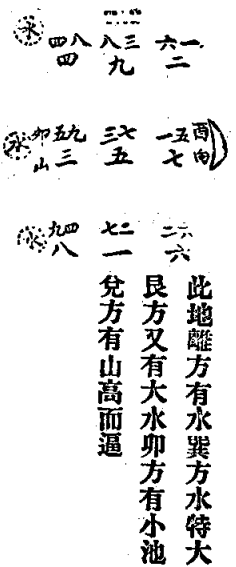 水 四八 八三 六一
四 九 二
水 卯山 五九 三七 一五 酉向
三 五 七
水 九四 七二 二六
八 一 六
此地離方有水巽方水特大
艮方又有大水卯方有小池
兌方有山高而逼